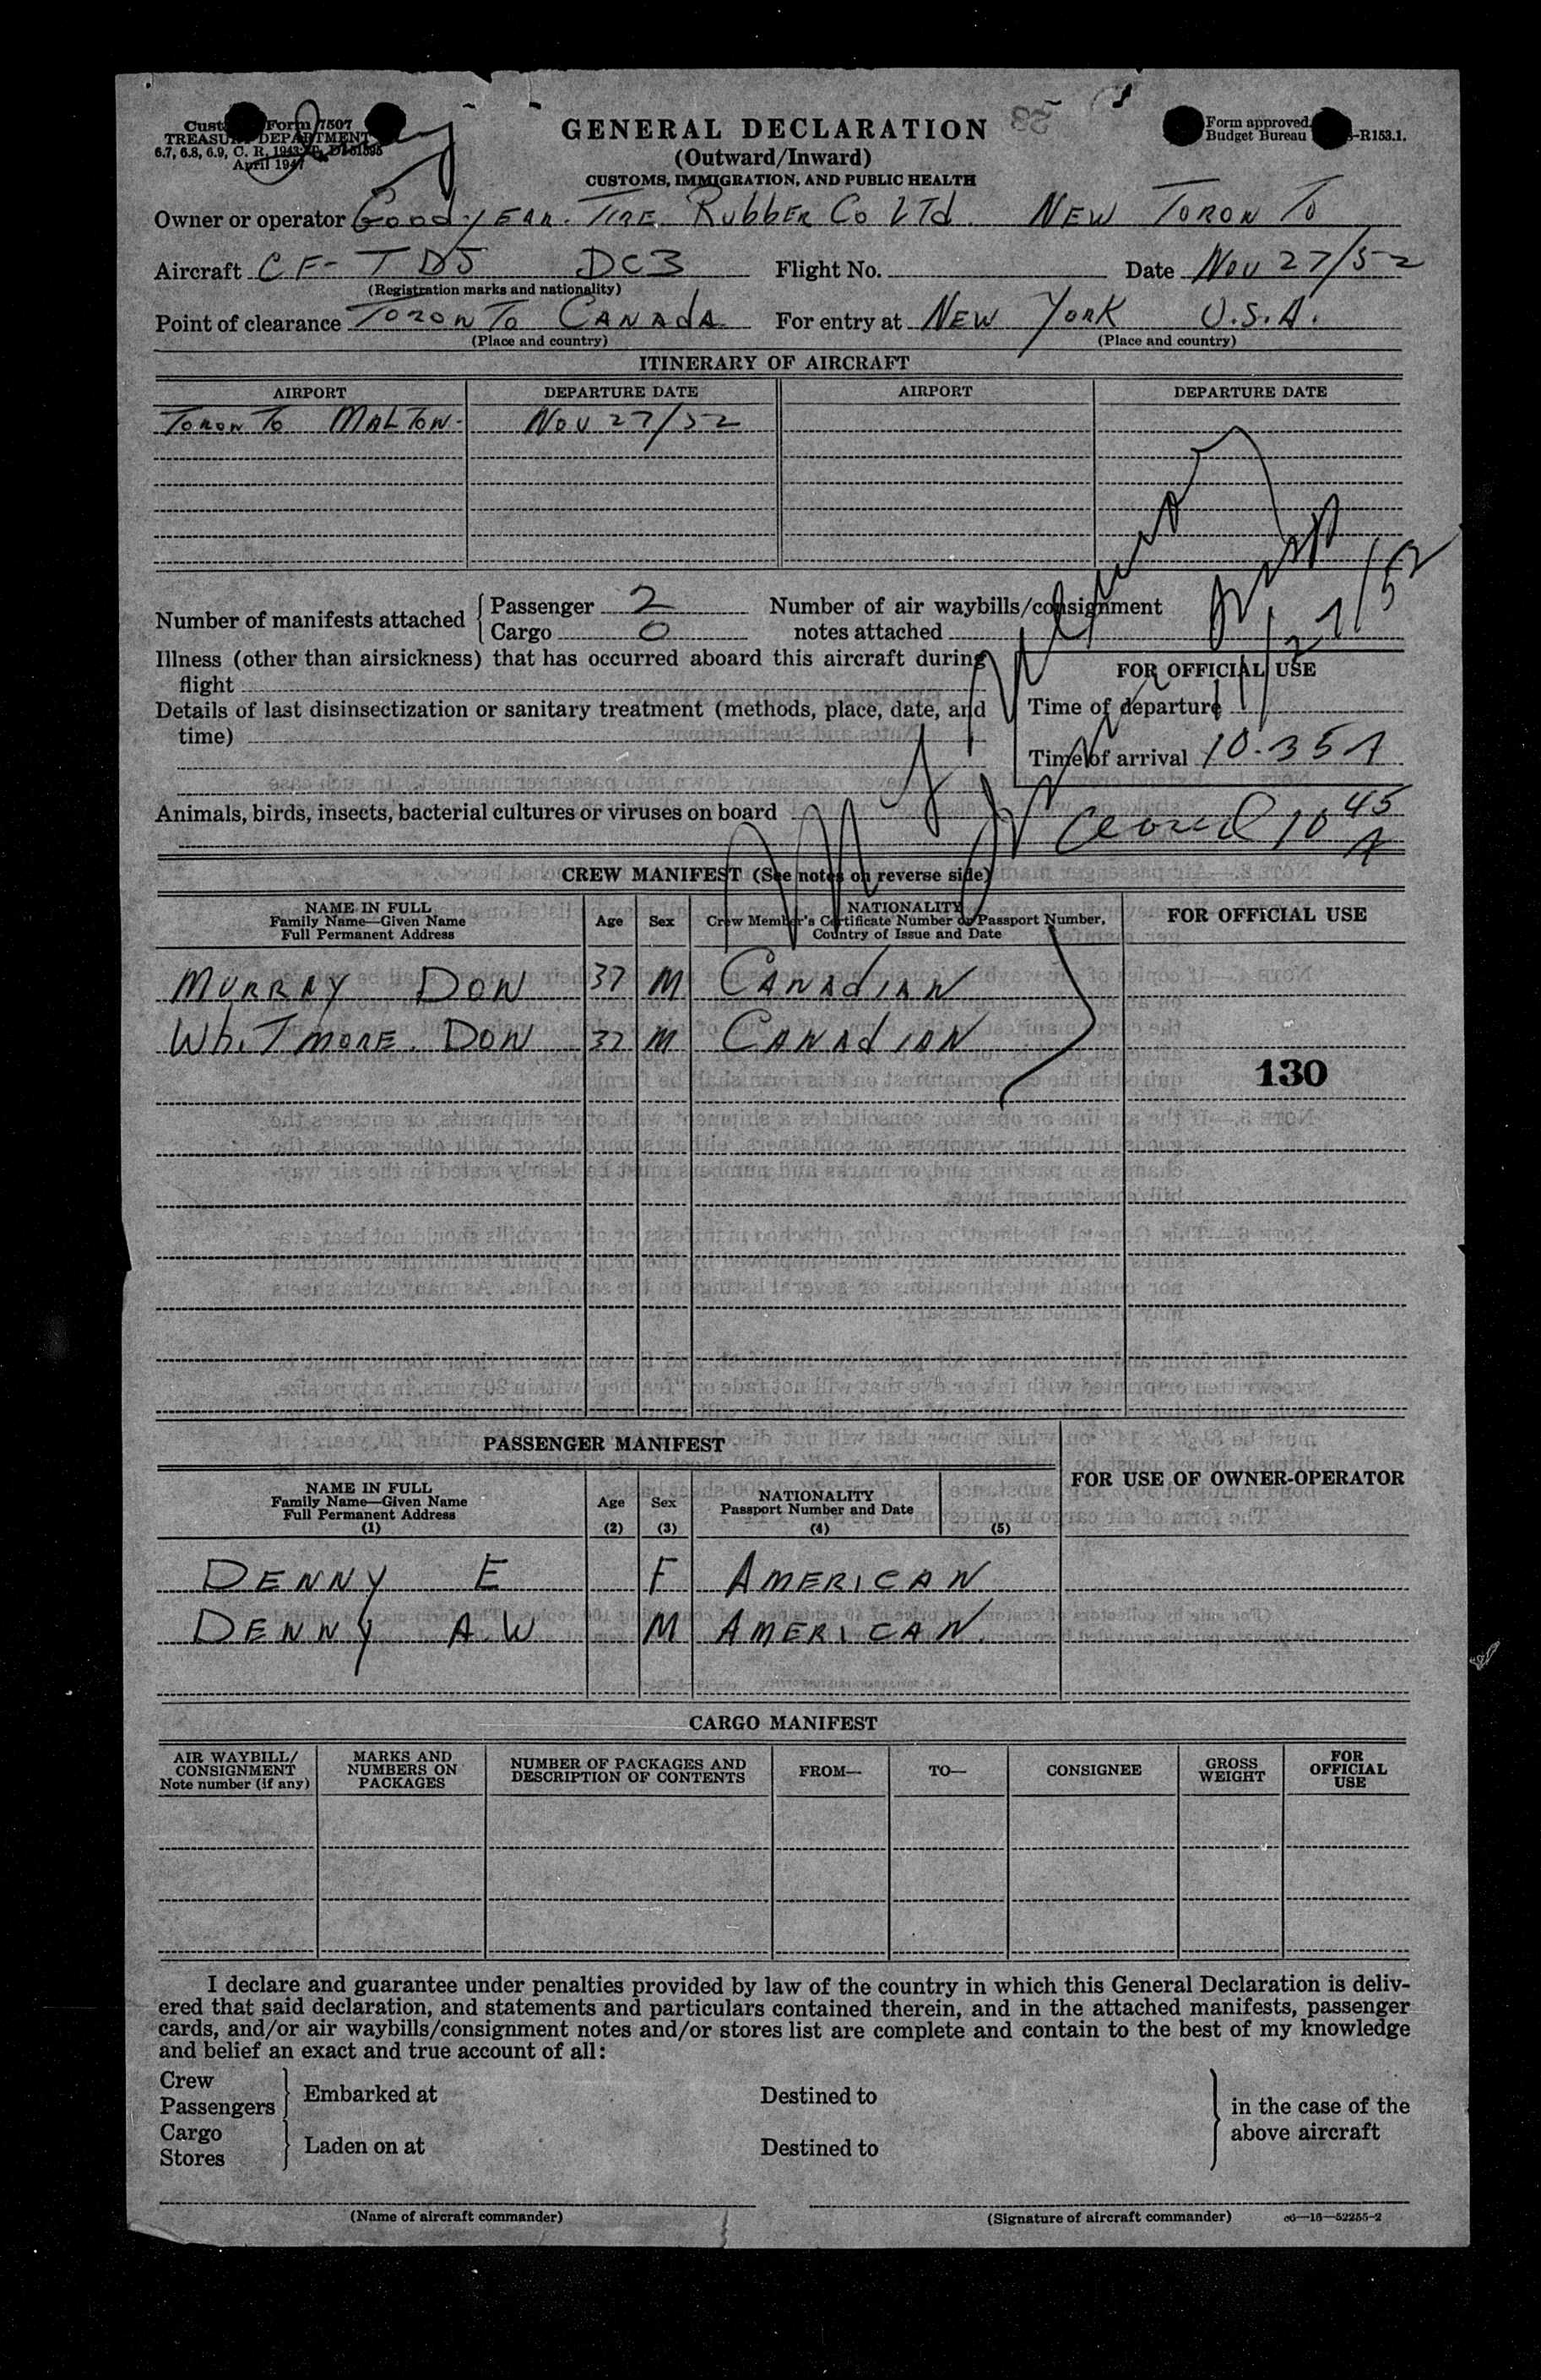 Customs Form 7507
TREASURY DEPARTMENT
6.7, 6.8, 6.9, C. R. 1943; T. D. 51595
April 1947
GENERAL DECLARATION
(Outward/Inward)
CUSTOMS, IMMIGRATION, AND PUBLIC HEALTH
33
Form approved.
Budget Bureau -R153.1.
Owner or operator Goodyear Tire Rubber Co Ltd. New Toronto
Aircraft CF-TDJ DC3 Flight No. Date Nov 27/52
(Registration marks and nationality)
Point of clearance Toronto Canada For entry at New York U.S.A.
(Place and country) (Place and country)
ITINERARY OF AIRCRAFT
AIRPORT DEPARTURE DATE AIRPORT DEPARTURE DATE
Toronto Malton- Nov 27/52
Number of manifests attached { Passenger 2 Cargo 0
Number of air waybills/consignment notes attached
Illness (other than airsickness) that has occurred aboard this aircraft during
flight
Details of last disinsectization or sanitary treatment (methods, place, date, and
time)
FOR OFFICIAL USE
Time of departure
Time of arrival 10.35 A
Animals, birds, insects, bacterial cultures or viruses on board
Cleared 10 45 A
CREW MANIFEST (See notes on reverse side)
NAME IN FULL
Family Name—Given Name
Full Permanent Address
Age Sex
NATIONALITY
Crew Member's Certificate Number or Passport Number,
Country of Issue and Date
FOR OFFICIAL USE
Murray Don 37 M Canadian
Whitmore. Don 32 M Canadian
130
PASSENGER MANIFEST
FOR USE OF OWNER-OPERATOR
NAME IN FULL
Family Name—Given Name
Full Permanent Address
(1)
Age
(2)
Sex
(3)
NATIONALITY
Passport Number and Date
(4) (5)
Denny E F American
Denny A.W M American.
CARGO MANIFEST
AIR WAYBILL/
CONSIGNMENT
Note number (if any)
MARKS AND
NUMBERS ON
PACKAGES
NUMBER OF PACKAGES AND
DESCRIPTION OF CONTENTS
FROM— TO— CONSIGNEE
GROSS
WEIGHT
FOR
OFFICIAL
USE
I declare and guarantee under penalties provided by law of the country in which this General Declaration is deliv-
ered that said declaration, and statements and particulars contained therein, and in the attached manifests, passenger
cards, and/or air waybills/consignment notes and/or stores list are complete and contain to the best of my knowledge
and belief an exact and true account of all:
Crew
Passengers } Embarked at Destined to
Cargo
Stores } Laden on at Destined to
} in the case of the
above aircraft
(Name of aircraft commander) (Signature of aircraft commander) c6—16—52255-2